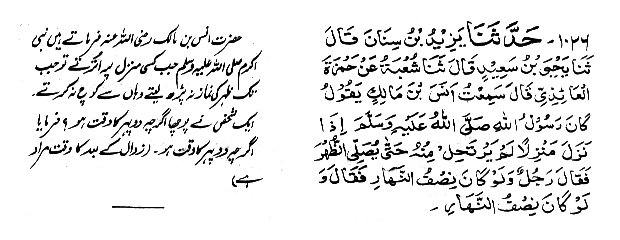 ۱۰۲۶- حَدَّثَنَا يَزِيْدُ بْنُ سِنَانَ قَالَ
ثَنَا يَحْيَى بْنُ سَعِيْدٍ قَالَ ثَنَا شُعْبَةُ عَنْ حَمْزَةَ
الْعَائِذِيِّ قَالَ سَمِعْتُ أَنَسَ بْنَ مَالِكٍ يَقُوْلُ
كَانَ رَسُوْلُ اللهِ صَلَّى اللهُ عَلَيْهِ وَسَلَّمَ إِذَا
نَزَلَ مَنْزِلًا لَمْ يَرْتَحِلْ مِنْهُ حَتّٰى يُصَلِّيَ الظُّهْرَ
فَقَالَ رَجُلٌ وَلَوْ كَانَ نِصْفُ النَّهَارِ فَقَالَ وَ
لَوْ كَانَ نِصْفُ النَّهَارِ -
حضرت انس بن مالک رضی اللہ عنہ فرماتے ہیں نبی
اکرم صلی اللہ علیہ وسلم جب کسی منزل پر اترتے تو جب
تک ظہر کی نماز نہ پڑھ لیتے وہاں سے کوچ نہ کرتے۔
ایک شخص نے پوچھا اگرچہ دوپہر کا وقت ہو ؟ فرمایا
اگرچہ دوپہر کا وقت ہو۔ (زوال کے بعد کا وقت مراد
ہے)